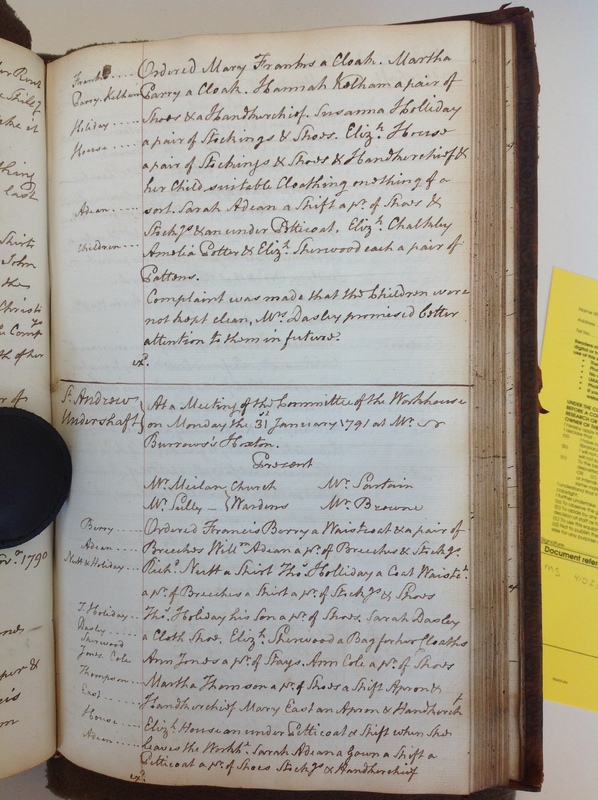 Franks .... Ordered Mary Franks a Cloak. Martha
Parry. Kelham Parry a Cloak. Hannah Kelham a pair of
Holiday .... Shoes & a Handkerchief. Susanna Holliday
House .... a pair of Stockings & Shoes. Elizth. House
a pair of Stockings & Shoes & Handkerchief &
her Child suitable Cloathing one thing of a
Adean .... sort. Sarah Adean a Shift a pr. of Shoes &
Stockgs & an under Petticoat, Elizth. Chalkley
Children .... Amelia Potter & Elizth. Sherwood each a pair of
Pattens.
Complaint was made that the Children were
not kept clean, Mrs. Dasley promised better
attention to them in future.
St. Andrew At a Meeting of the Committee of the Workhouse
Undershaft on Monday the 31st January 1791 at Mr.
Burrows's Hoxton.
Present
Mr. Meilan Church Mr. Sartain
Mr. Sulley Wardens Mr. Browne
Berry .... Ordered Francis Berry a Waistcoat & a pair of
Adean .... Breeches Willm. Adean a pr. of Breeches & Stockgs.
Nutt & Holiday .... Richd. Nutt a Shirt Thos. Holliday a Coat Waistct.
a pr. of Breeches a Shirt a pr. of Stockgs & Shoes
T. Holiday .. Thos. Holiday his Son a pr. of Shoes. Sarah Dasley
Dasley ....
Sherwood a Cloth Shoe. Elizth. Sherwood a Bag for her Cloaths
Jones. Cole Ann Jones a pr. of Stays. Ann Cole a pr. of Shoes
Thompson .... Martha Thomson a pr. of Shoes a Shift Apron &
East .... Handkerchief Mary East an Apron & Handkerch
House .... Elizth. House an under Petticoat & Shift when she
Adean .... leaves the Workh. Sarah Adean a Gown a Shift a
Petticoat a pr. of Shoes Stockgs & Handkerchief
Novr. 1790
Document refer